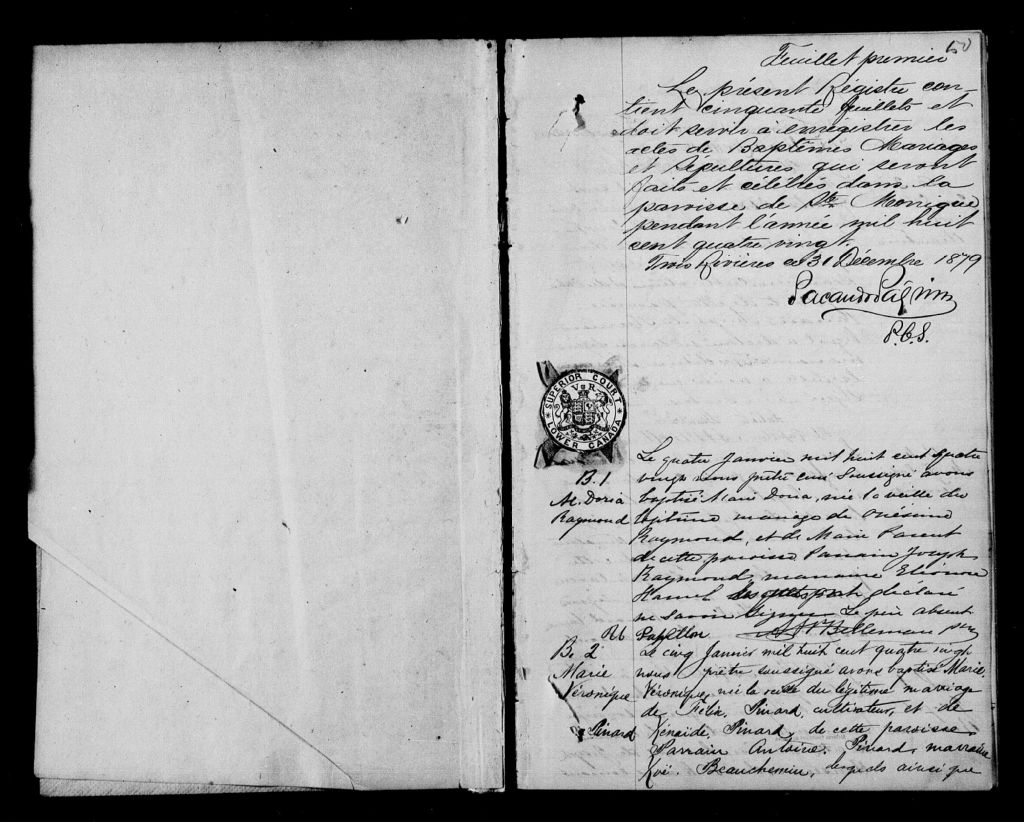 50
Feuillet premier
Le présent Régistre con-
tient cinquante feuillets et
doit servir à enrégistrer les
actes de Baptêmes Mariages
et Sépultures qui seront
faits et célébrés dans la
paroisse de Ste Monique
pendant l'année mil huit
cent quatre vingt.
Trois Rivières ce 31 Décembre 1879
P.C.S.
SUPERIOR COURT
V R
LOWER CANADA
B. 1
M. Doria
Raymond
Le quatre Janvier mil huit cent quatre
vingt nous prêtre curé soussigné avons
baptisé Marie Doria, née la veille du
légitime mariage de Onésime
Raymond, et de Marie Parent
de cette paroisse Parrain Joseph
Raymond, marraine Eléonore
Hamel déclaré
ne savoir signer Le père absent
B. 2
Marie
Véronique
Pinard
Le cinq Janvier mil huit cent quatre vingt
nous prêtre soussigné avons baptisé Marie
Véronique, née la veille du légitime mariage
de Félix Pinard, cultivateur, et de
Zénaïde Pinard, de cette paroisse
Parrain Antoine Pinard, marraine
Zoé Beauchemin, lesquels ainsi que